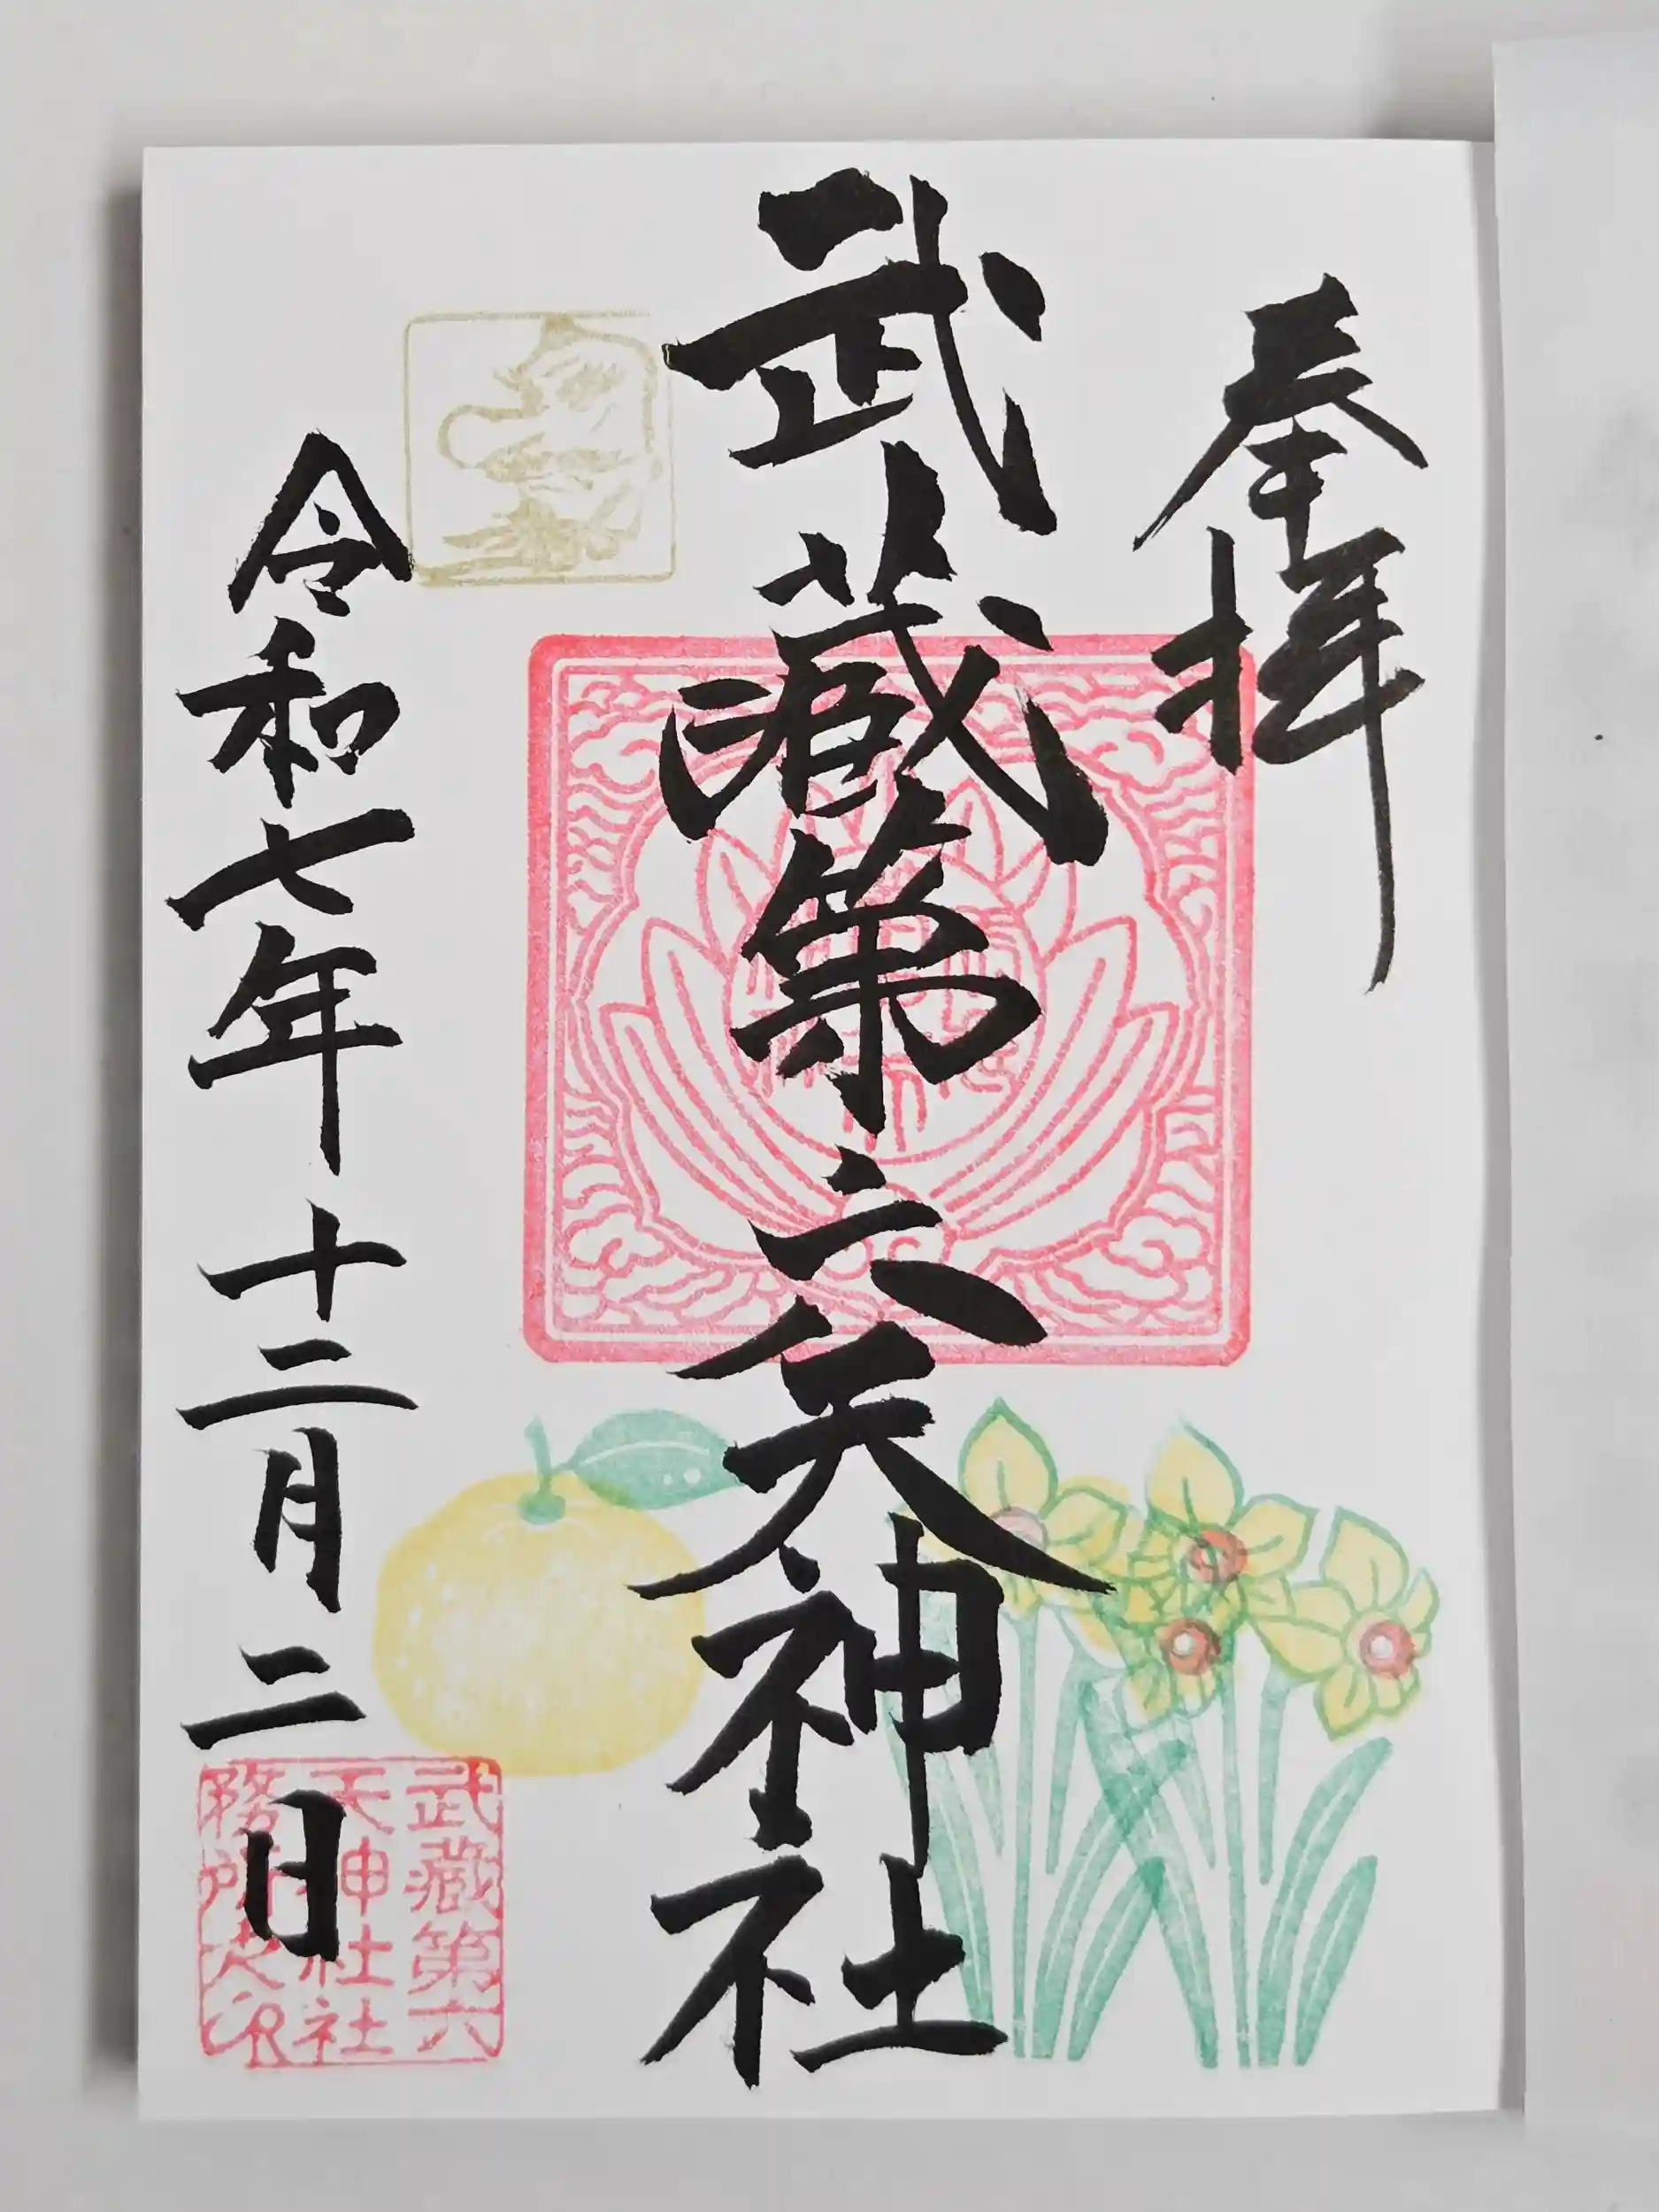 奉拝
武蔵第六天神社
令和七年十二月二日
武蔵第六
天神社社
務所之印